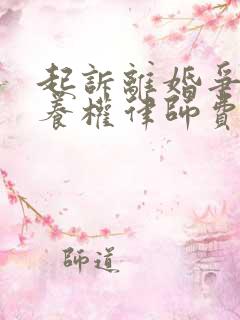 起訴離婚爭
養權律師費
師道